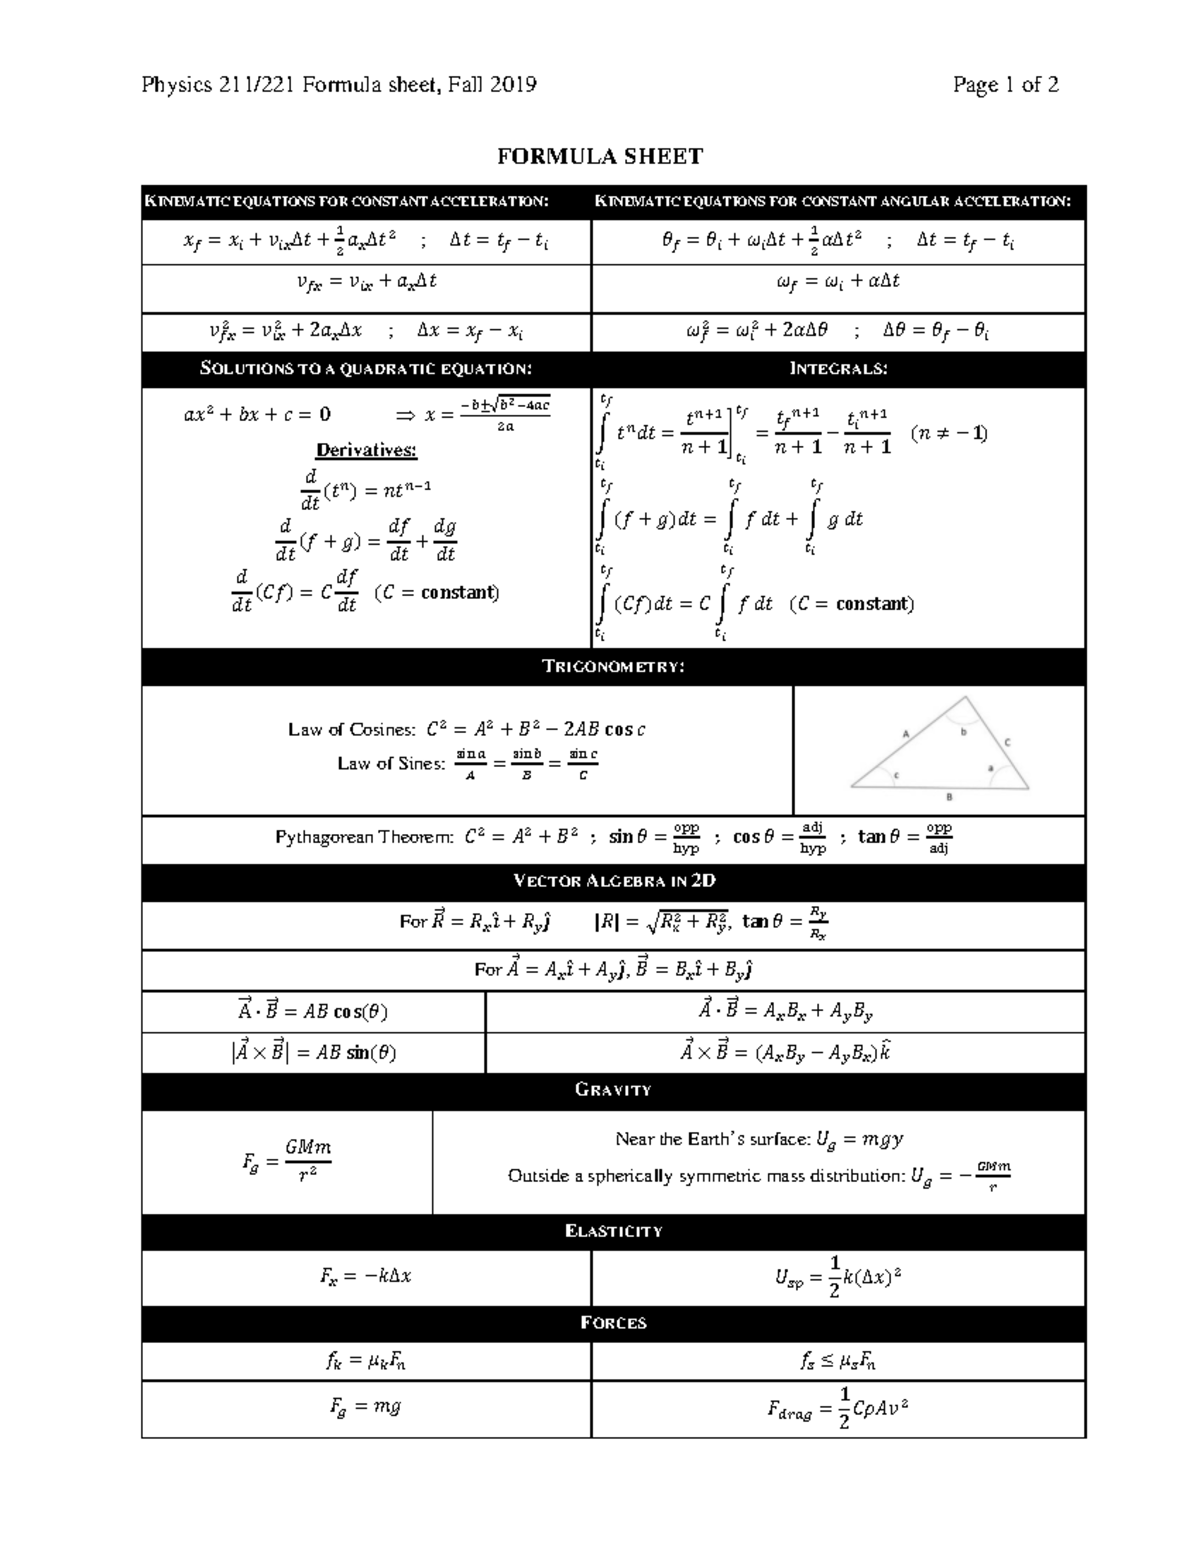 Physics 211/221 Formula sheet, Fall 2019 Page 1 of 2
FORMULA SHEET
KINEMATIC EQUATIONS FOR CONSTANT ACCELERATION: KINEMATIC EQUATIONS FOR CONSTANT ANGULAR ACCELERATION:
x_f = x_i + v_{ix}Δt + \frac{1}{2}a_xΔt² ; Δt = t_f − t_i θ_f = θ_i + ω_iΔt + \frac{1}{2}αΔt² ; Δt = t_f − t_i
v_{fx} = v_{ix} + a_xΔt ω_f = ω_i + αΔt
v_{fx}^2 = v_{ix}^2 + 2a_xΔx ; Δx = x_f − x_i ω_f^2 = ω_i^2 + 2αΔθ ; Δθ = θ_f − θ_i
SOLUTIONS TO A QUADRATIC EQUATION: INTEGRALS:
ax² + bx + c = 0 ⟹ x = \frac{−b±\sqrt{b²−4ac}}{2a}
Derivatives:
\frac{d}{dt}(t^n) = nt^{n−1}
\frac{d}{dt}(f + g) = \frac{df}{dt} + \frac{dg}{dt}
\frac{d}{dt}(Cf) = C\frac{df}{dt} (C = constant)
\int_{t_i}^{t_f} t^n dt = \frac{t^{n+1}}{n + 1}]_{t_i}^{t_f} = \frac{t_f^{n+1}}{n + 1} − \frac{t_i^{n+1}}{n + 1} (n ≠ −1)
\int_{t_i}^{t_f} (f + g)dt = \int_{t_i}^{t_f} f dt + \int_{t_i}^{t_f} g dt
\int_{t_i}^{t_f} (Cf)dt = C \int_{t_i}^{t_f} f dt (C = constant)
TRIGONOMETRY:
Law of Cosines: C² = A² + B² − 2AB cos c
Law of Sines: \frac{sin a}{A} = \frac{sin b}{B} = \frac{sin c}{C}
A b C
c a
B
Pythagorean Theorem: C² = A² + B² ; sin θ = \frac{opp}{hyp} ; cos θ = \frac{adj}{hyp} ; tan θ = \frac{opp}{adj}
VECTOR ALGEBRA IN 2D
For \vec{R} = R_x\hat{i} + R_y\hat{j} |R| = \sqrt{R_x^2 + R_y^2}, tan θ = \frac{R_y}{R_x}
For \vec{A} = A_x\hat{i} + A_y\hat{j}, \vec{B} = B_x\hat{i} + B_y\hat{j}
\vec{A} · \vec{B} = AB cos(θ) \vec{A} · \vec{B} = A_xB_x + A_yB_y
|\vec{A} × \vec{B}| = AB sin(θ) \vec{A} × \vec{B} = (A_xB_y − A_yB_x)\hat{k}
GRAVITY
F_g = \frac{GMm}{r²}
Near the Earth's surface: U_g = mgy
Outside a spherically symmetric mass distribution: U_g = −\frac{GMm}{r}
ELASTICITY
F_x = −kΔx U_{sp} = \frac{1}{2}k(Δx)²
FORCES
f_k = μ_kF_n f_s ≤ μ_sF_n
F_g = mg F_{drag} = \frac{1}{2}CρAv²